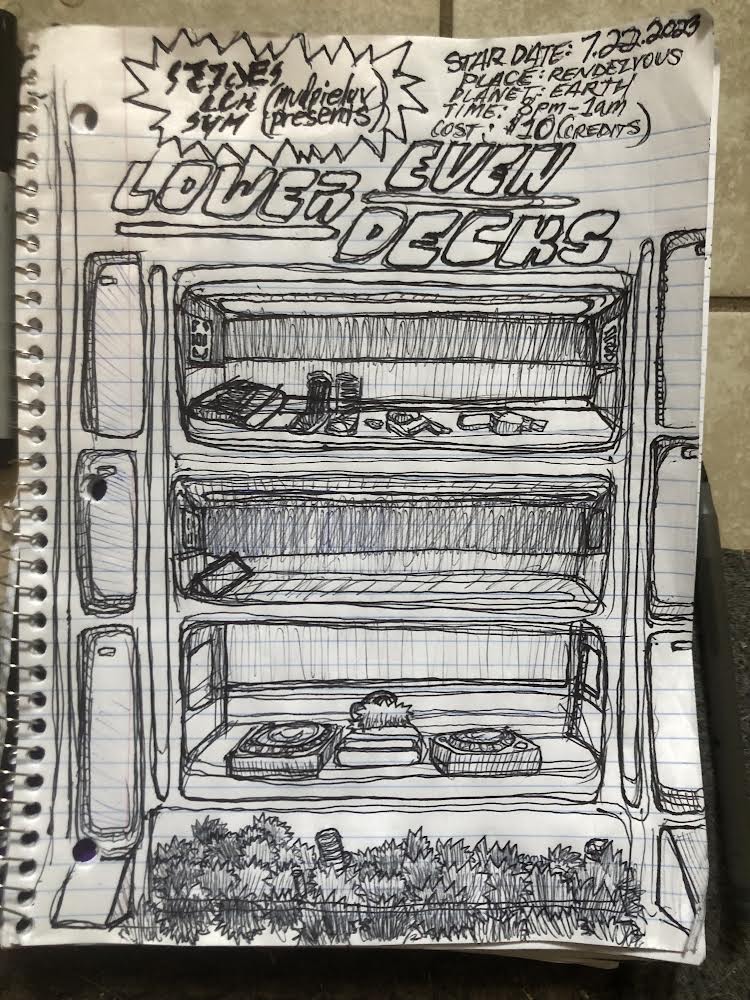 (mulpielav
presents)
STAR DATE: 7.22.2023
PLACE: RENDEZVOUS
PLANET: EARTH
TIME: 8pm-1am
COST: $10 (CREDITS)
LOWER EVEN
DECKS